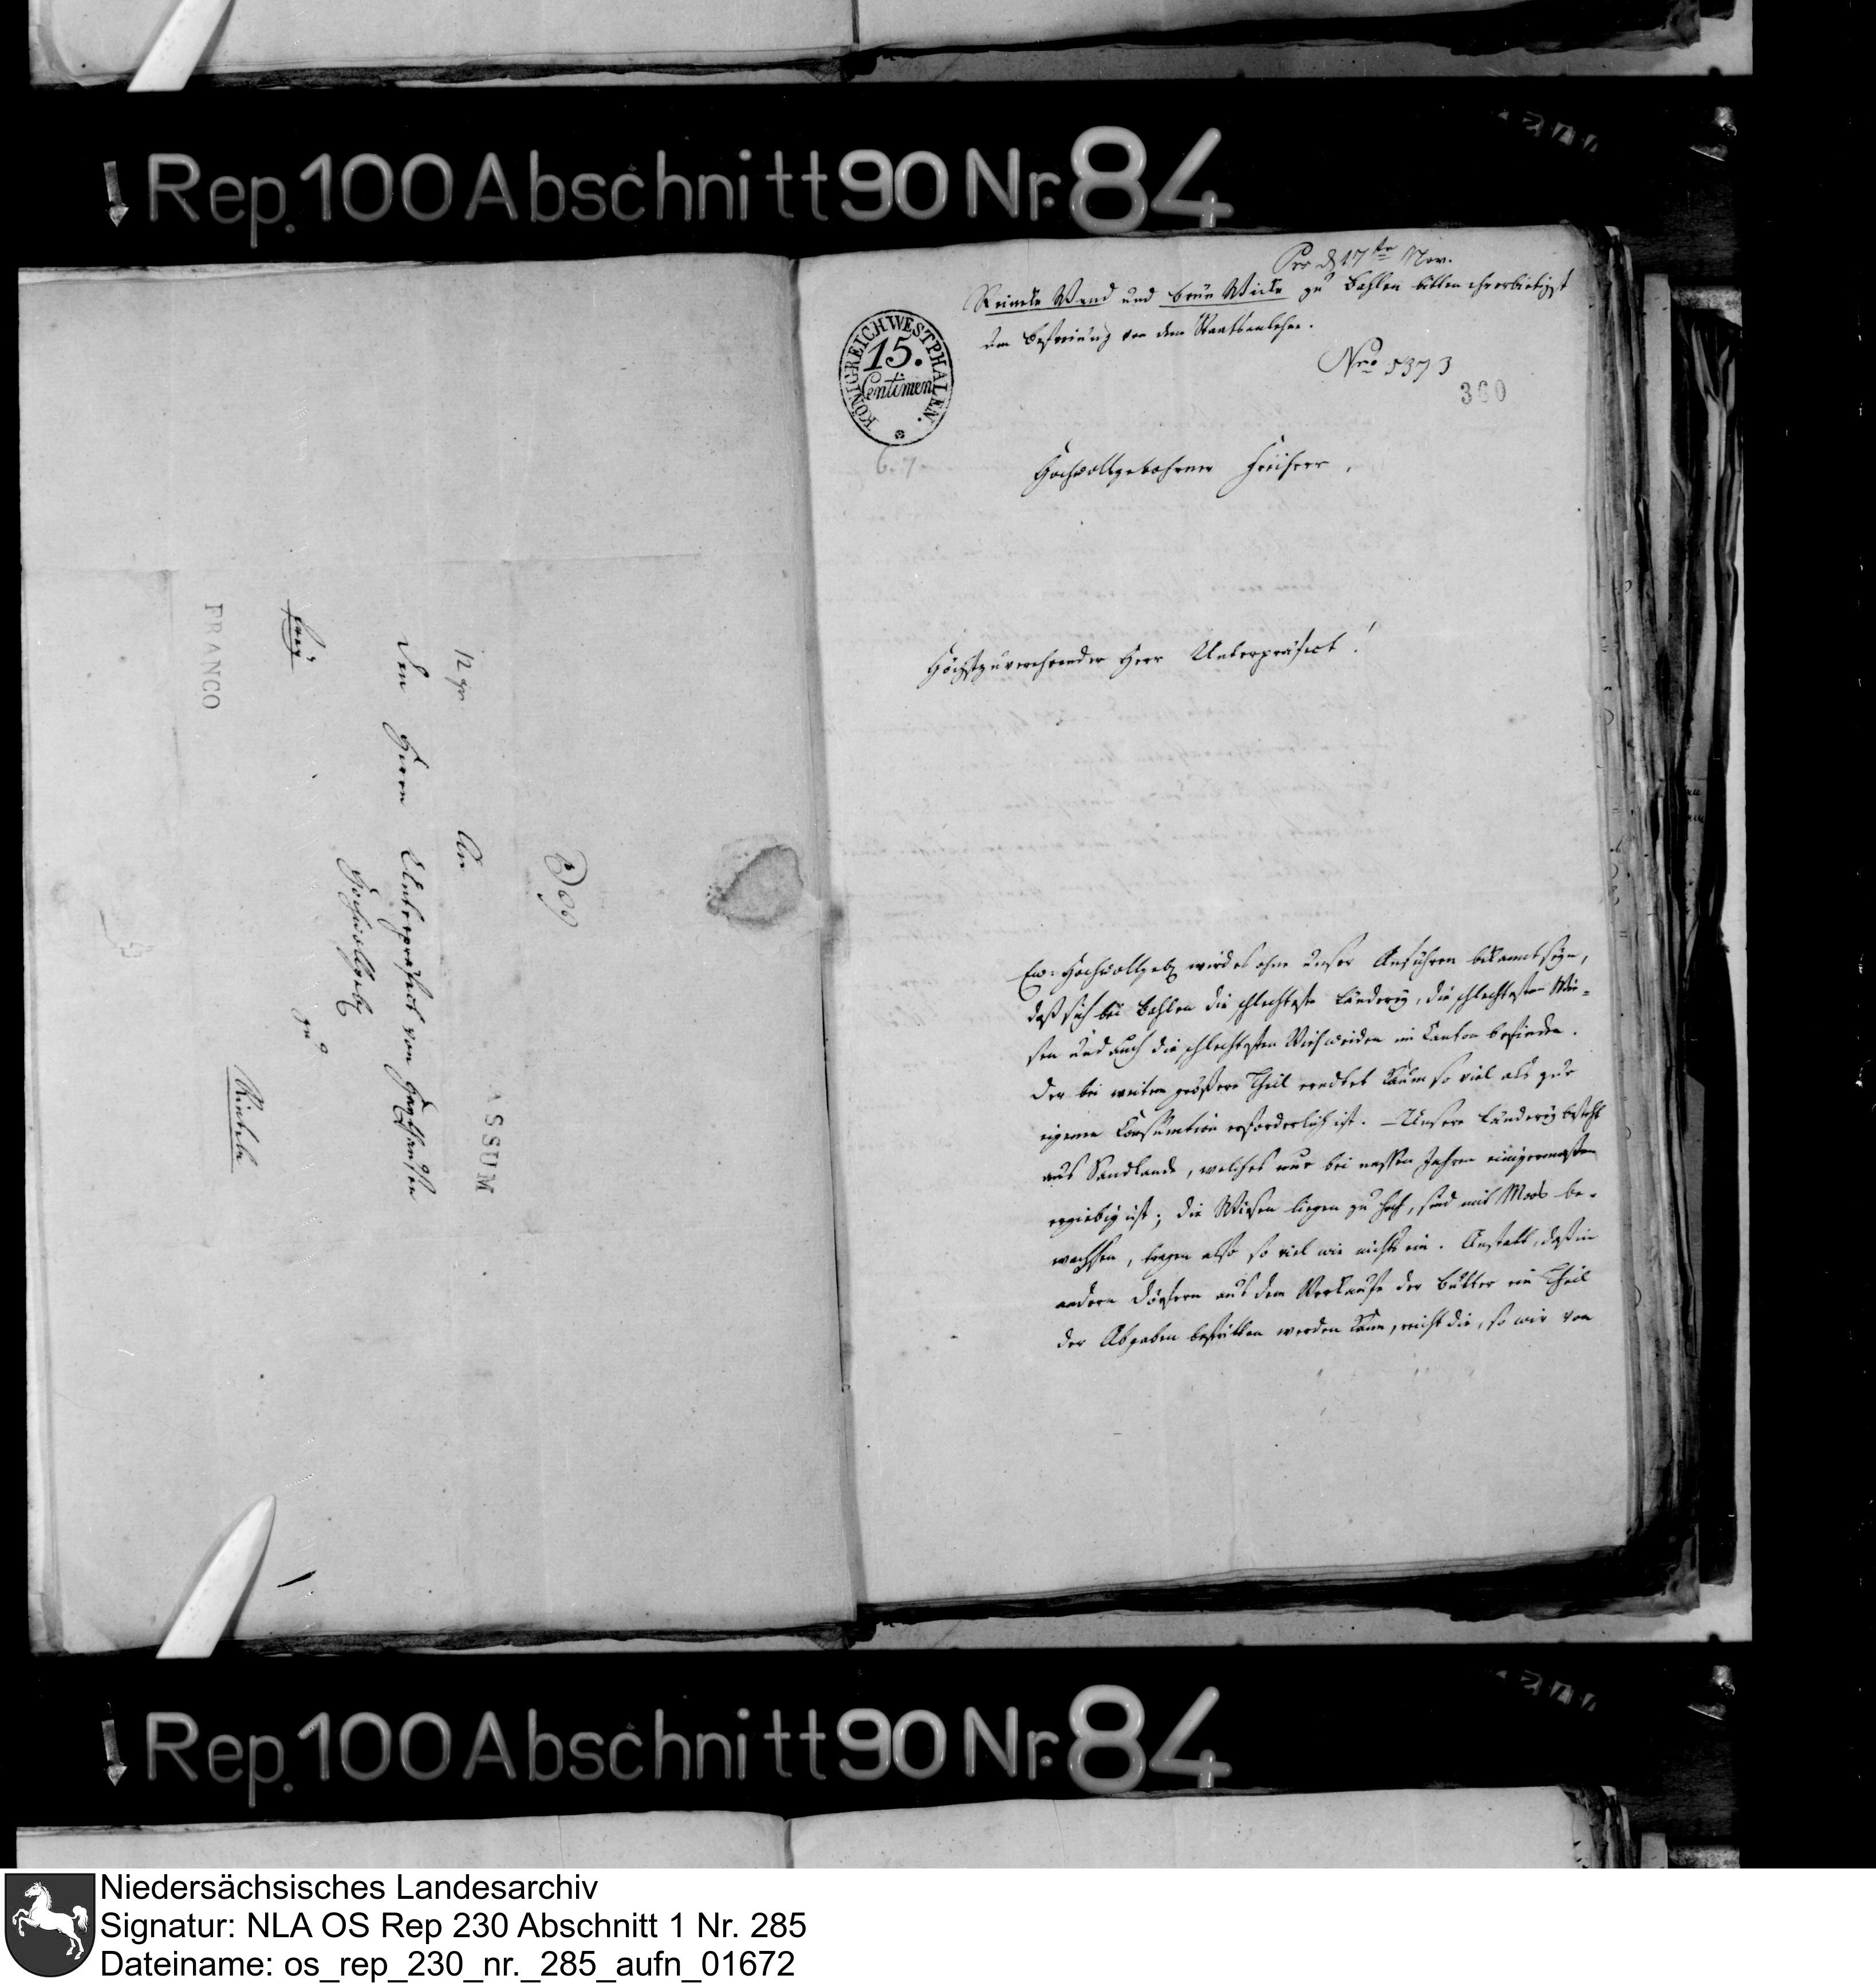 Rep. 100 Abschnitt 90 Nr. 84
FRANCO
frey
12 gr
An
den Herrn Unterpräfect von Haxthausen
Hochwollgeb
zu
Rinteln
SSUM
Prs d 17te Nov.
Reineke Wend und Brün Wicke zu Bahlen bitten ehrerbietigst
um Befreiung von dem Staatsanlehne.
Nro 5373
360
KÖNIGREICH WESTPHALEN.
15.
Centimen
6.7.
Hochwollgebohrner Freiherr,
Höchstzuverehrender Herr Unterpräfect!
Ew: Hochwollgeb wird es ohne unser Anführen bekannt seyn,
daß sich bei Bahlen die schlechteste Länderey, die schlechtesten Wie-
sen und auch die schlechtesten Viehweiden im Canton befinden.
Der bei weitem größere Theil erndtet kaum so viel als zur
eigenen Consumtion erforderlich ist. – Unsere Länderey besteht
aus Sandlande, welches nur bei nassen Jahren einigermaßen
ergiebig ist; die Wiesen liegen zu hoch, sind mit Moos be-
wachsen, tragen also so viel wie nichts ein. Anstatt, daß in
andern Dörfern aus dem Verkaufe der Butter ein Theil
der Abgaben bestritten werden kann, reicht die, so wir von
Rep. 100 Abschnitt 90 Nr. 84
Niedersächsisches Landesarchiv
Signatur: NLA OS Rep 230 Abschnitt 1 Nr. 285
Dateiname: os_rep_230_nr._285_aufn_01672